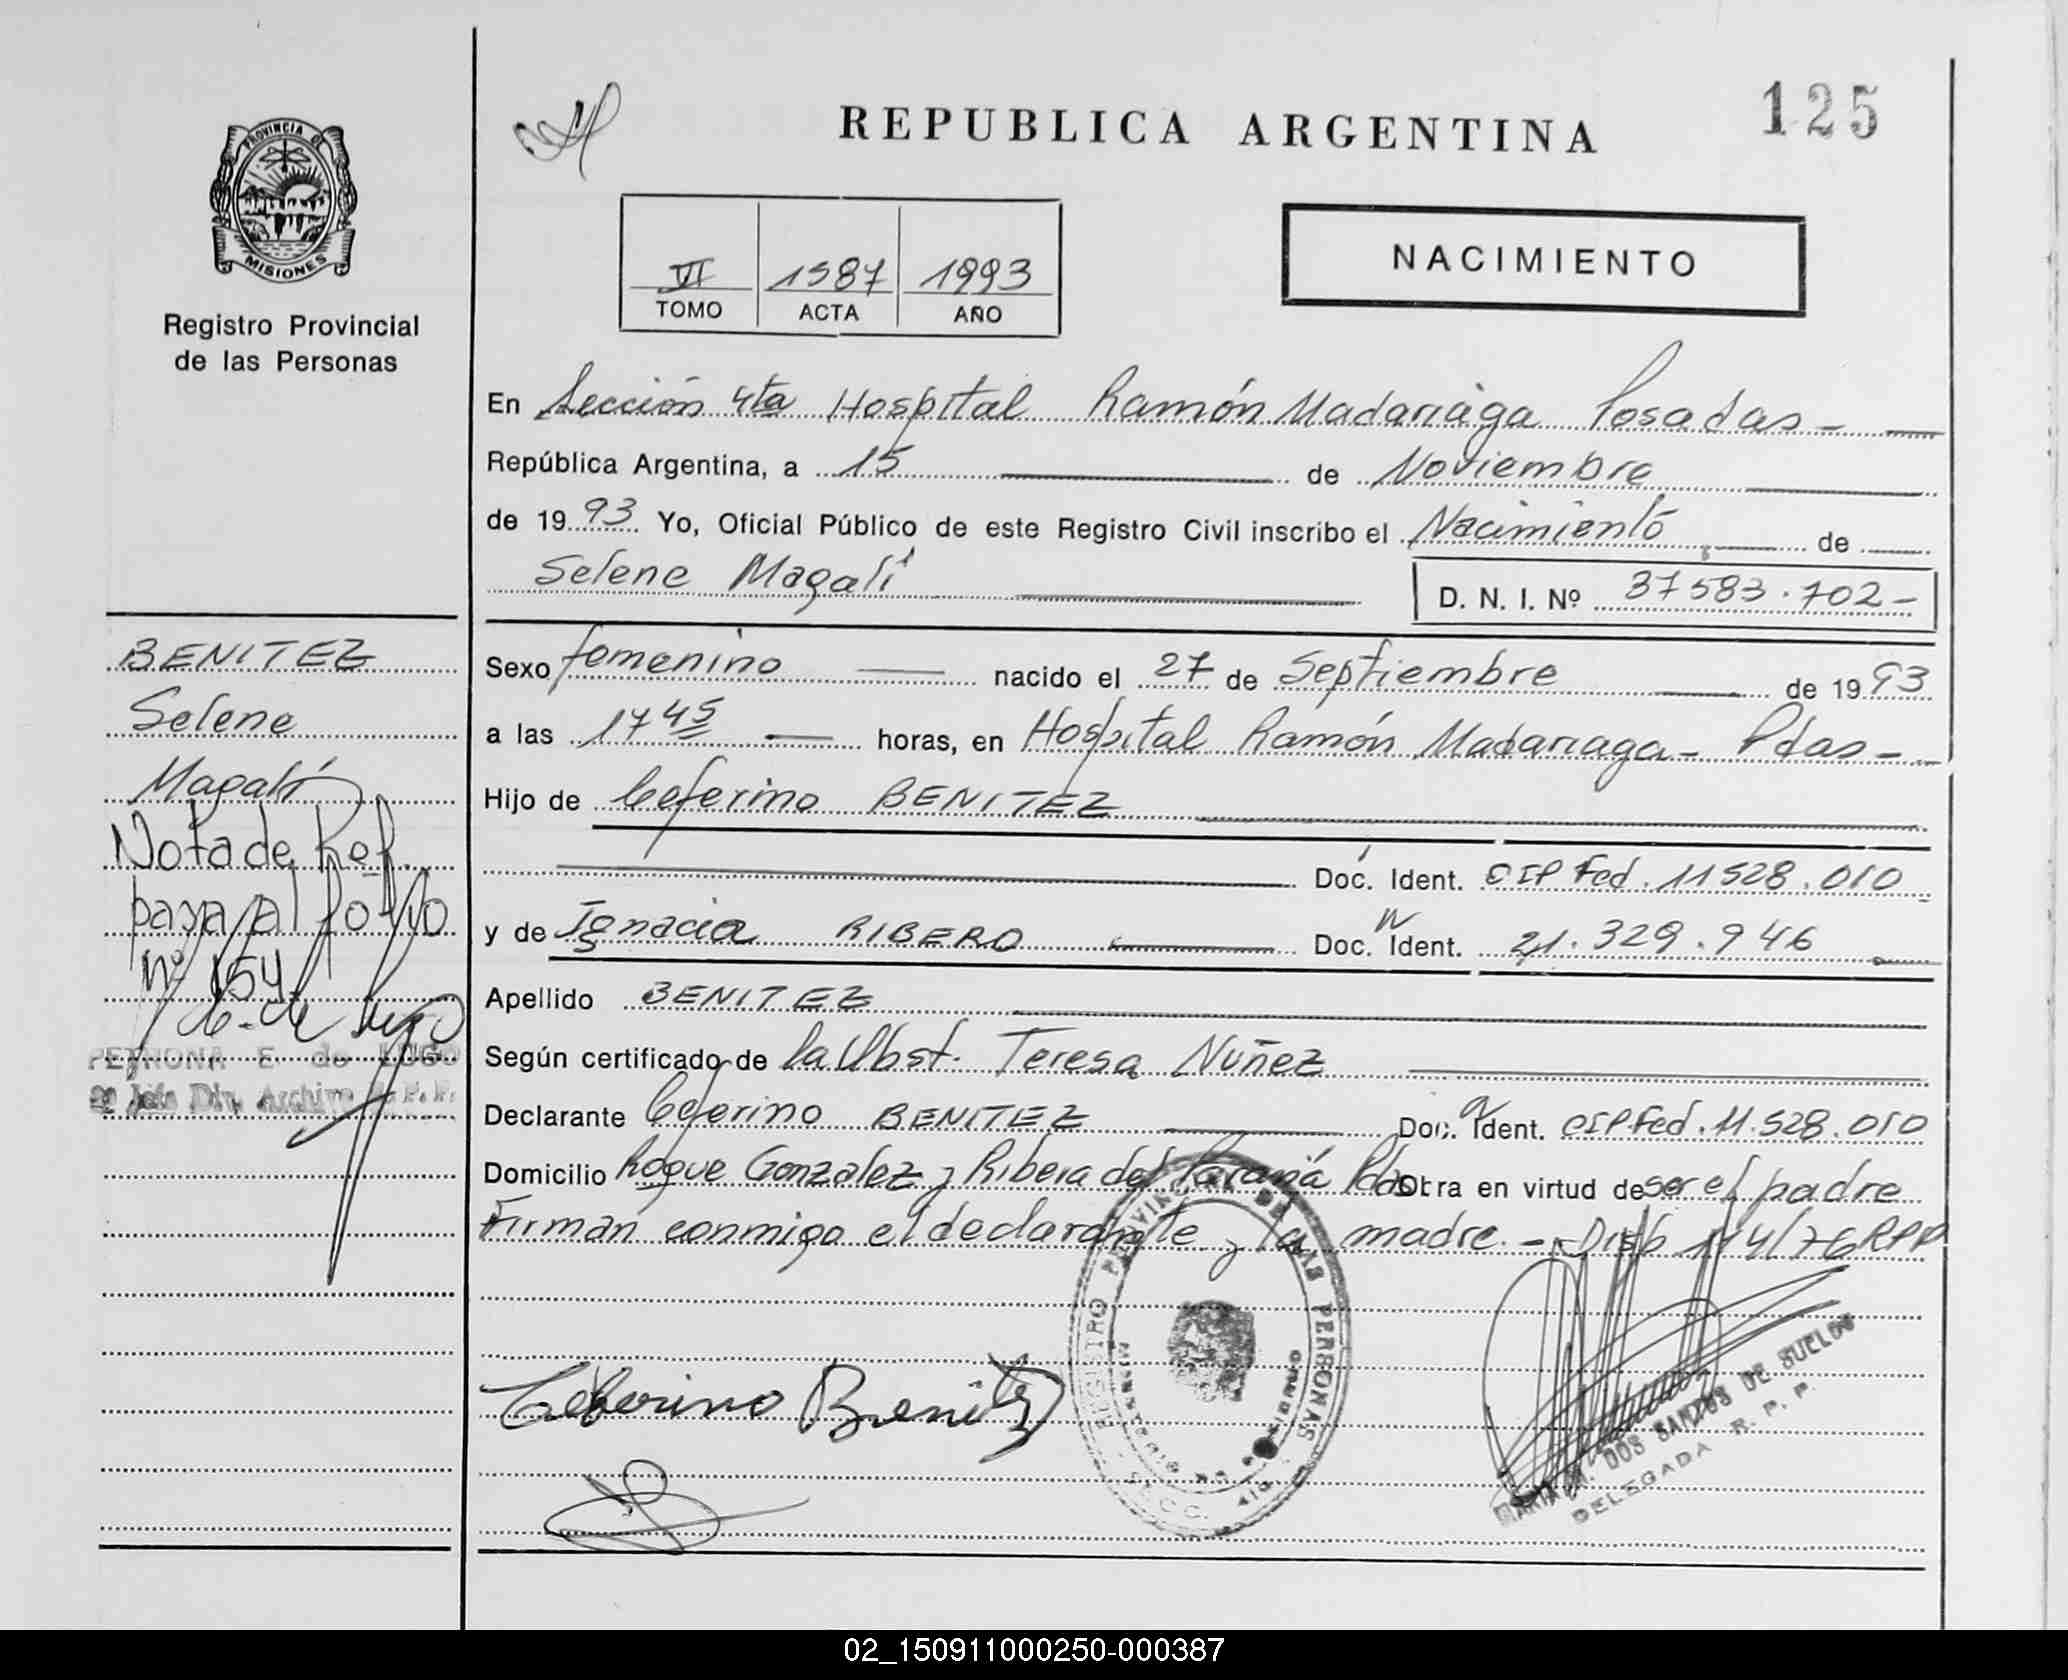 125
REPUBLICA ARGENTINA
PROVINCIA DE
MISIONES
Registro Provincial
de las Personas
NACIMIENTO
VI 1587 1993
TOMO ACTA AÑO
En Sección 4ta Hospital Ramón Madariaga Posadas -
República Argentina, a 15 de Noviembre
de 1993 Yo, Oficial Público de este Registro Civil inscribo el Nacimiento de
Selene Magalí D. N. I. Nº 37583.702-
BENITEZ
Selene
Magalí
Nota de Ref.
pasa al folio
Nº 154
de Lugo
PETRONA E de LUGO
Jefe Div. Archivo R.P.P.
Sexo femenino nacido el 27 de Septiembre de 1993
a las 17 45 horas, en Hospital Ramón Madariaga - Pdas -
Hijo de Ceferino BENITEZ
Doc. Ident. CIP Fed. 11528.010
y de Ignacia RIBERO Doc. Ident. 21.329.946
Apellido BENITEZ
Según certificado de la Obst. Teresa Nuñez
Declarante Ceferino BENITEZ Doc. Ident. CIP Fed. 11.528.010
Domicilio Roque Gonzalez y Ribera del Paraná Pdas Obra en virtud de ser el padre
Firman conmigo el declarante y la madre. - Disp 114/76 RPP
REGISTRO PROVINCIAL DE LAS PERSONAS
Ceferino Benitez
DOS SANTOS DE SUELDO
DELEGADA R. P. P.
02_150911000250-000387